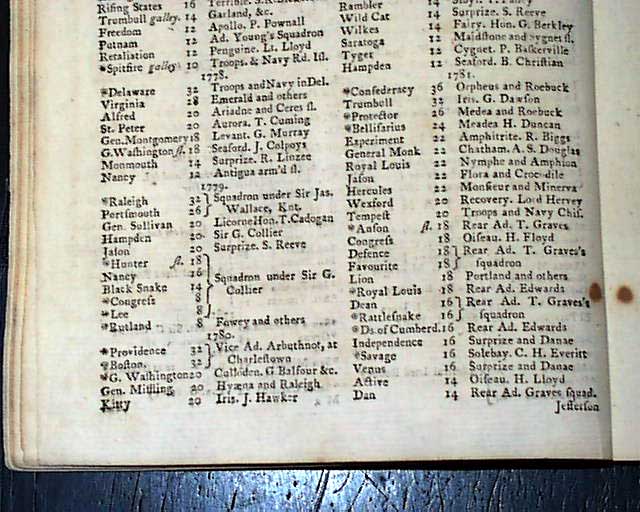 Rising States 16
Trumbull galley. 14 Garland, &c.
Freedom 12 Apollo. P. Pownall
Putnam 12 Ad. Young's Squadron
Retaliation 12 Penguine. Lt. Lloyd
*Spitfire galley 10 Troops. & Navy Rd. Isl.
1778.
*Delaware 32 Troops and Navy in Del.
Virginia 28 Emerald and others
Alfred 20 Ariadne and Ceres sl.
St. Peter 20 Aurora. T. Cuming
Gen. Montgomery 18 Levant. G. Murray
G. Washington sl. 18 Seaford. J. Colpoys
Monmouth 14 Surprize. R. Linzee
Nancy 12 Antigua arm'd sl.
1779.
*Raleigh 32 } Squadron under Sir Jas.
Portsmouth 26 } Wallace, Knt.
Gen. Sullivan 20 Licorne Hon. T. Cadogan
Hampden 20 Sir G. Collier
Jason 20 Surprize. S. Reeve
*Hunter sl. 18
Nancy 16 Squadron under Sir G.
Black Snake 14 Collier
*Congress 8
*Lee 8
*Rutland 8 Fowey and others
1780.
*Providence 32 } Vice Ad. Arbuthnot, at
*Boston. 32 } Charlestown
*G. Washington 20 Culloden. G Balfour &c.
Gen. Miffling 20 Hyæna and Raleigh
Kitty 20 Iris. J. Hawker
Rambler 14
Wild Cat 14 Surprize. S. Reeve
Wilkes 14 Fairy. Hon. G. Berkley
Saratoga 12 Maidstone and Cygnet sl.
Tyger 12 Cygnet. P. Baskerville
Hampden 12 Seaford. B. Christian
1781.
*Confederacy 36 Orpheus and Roebuck
Trumbull 32 Iris. G. Dawson
*Protector 26 Medea and Roebuck
*Bellisarius 24 Meadea H. Duncan
Experiment 22 Amphitrite. R. Biggs
General Monk 22 Chatham. A. S. Douglas
Royal Louis 22 Nymphe and Amphion
Jason 22 Flora and Crocodile
Hercules 22 Monsieur and Minerva
Wexford 20 Recovery. Lord Hervey
Tempest 20 Troops and Navy Chis.
*Anson sl. 18 Rear Ad. T. Graves
Congress 18 Oiseau. H. Floyd
Defence 18 } Rear Ad. T. Graves's
Favourite 18 } squadron
Lion 18 Portland and others
*Royal Louis 18 Rear Ad. Edwards
Dean 16 } Rear Ad. T. Graves's
*Rattlesnake 16 } squadron
*Ds. of Cumberd. 16 Rear Ad. Edwards
Independence 16 Surprize and Danae
*Savage 16 Solebay. C. H. Everitt
Venus 16 Surprize and Danae
Active 14 Oiseau. H. Lloyd
Dan 14 Rear Ad. Graves squad.
Jefferson